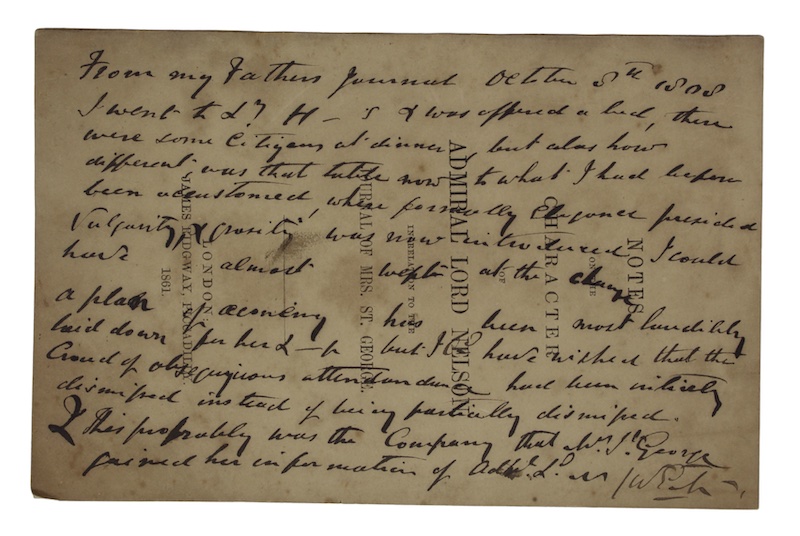 From my Fathers Journal October 8th 1808
I went to Ly H — s & was offered a bed, there
were some Citizens at dinner, but alas how
different was that table now to what I had before
been accustomed, where formally Elegance presided
Vulgarity, & grossity was now introduced, I could
have almost wept at the change
a plan of œconimy has been most laudibly
laid down for her L—p but I have wished that the
Croud of obsequious attendance had been intirely
dismissed instead of being partially dismissed.
This probably was the Company that Mrs St George
gained her information of Adml Ld N
NOTES
ON THE
CHARACTER
OF
ADMIRAL LORD NELSON
IN RELATION TO THE
JOURNAL OF MRS. ST. GEORGE.
LONDON
JAMES RIDGWAY, PICCADILLY.
1861.